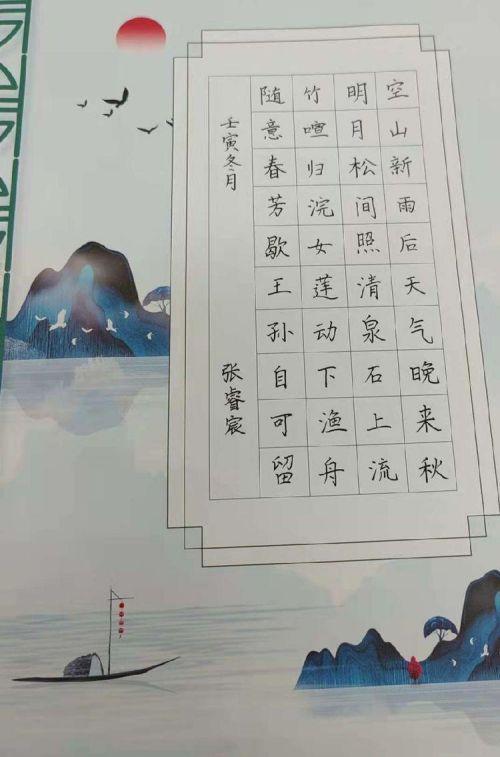 空山新雨后天气晚来秋
明月松间照清泉石上流
竹喧归浣女莲动下渔舟
随意春芳歇王孙自可留
壬寅冬月
张睿宸